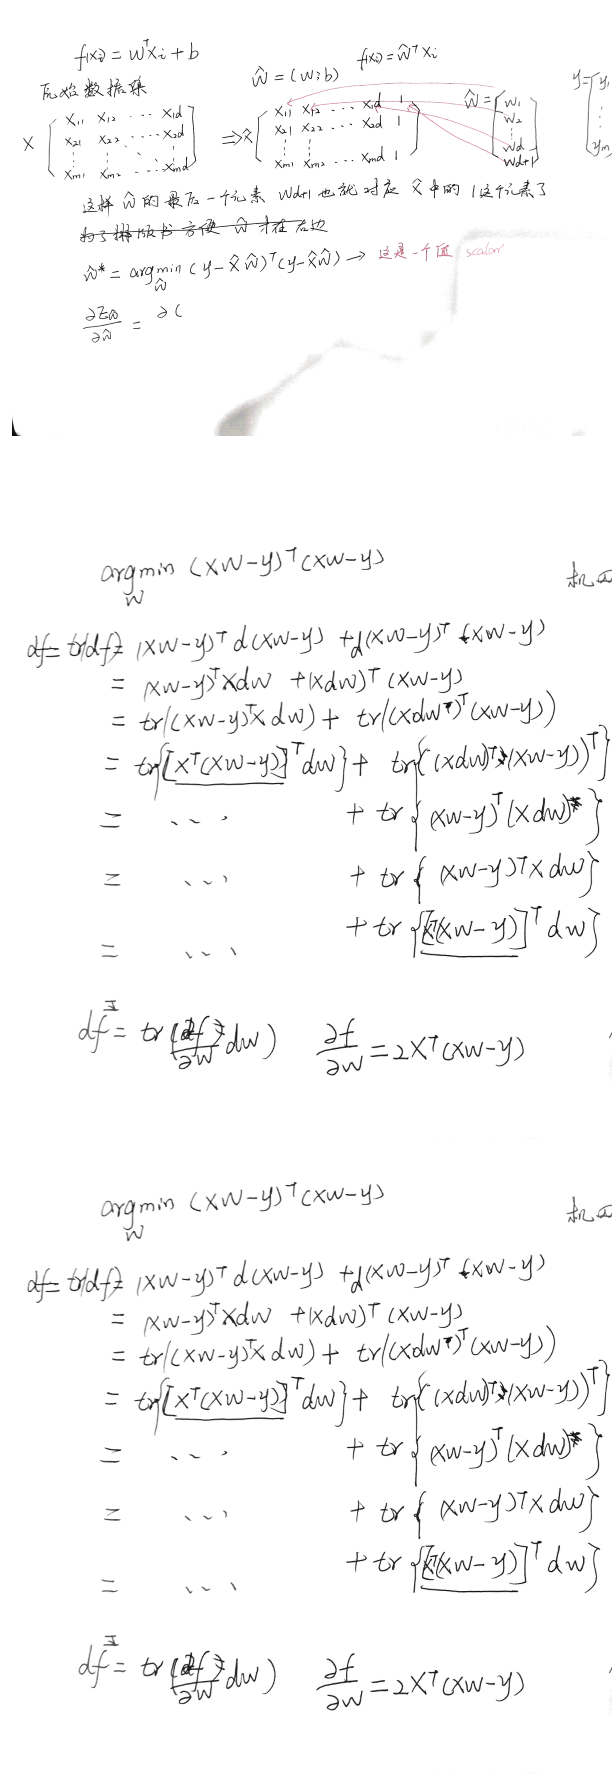 f(xi) = wᵀxi + b
ŵ = (w;b) f(xi) = ŵᵀxi
原始数据集
X [ x11 x12 ... x1d ⇒ x̂ [ x11 x12 ... x1d 1 ŵ = [ w1 y = [ y1
x21 x22 ... x2d x21 x22 ... x2d 1 w2
⋮ ⋮ ⋮ ⋮ ⋮ ⋮
xm1 xm2 ... xmd ] xm1 xm2 ... xmd 1 ] wd ym
wd+1 ]
这样 ŵ 的最后一个元素 wd+1 也就对应 x̂ 中的 1 这个元素了
为了排版书方便 ŵ 才在右边
ŵ* = argmin (y - x̂ŵ)ᵀ(y - x̂ŵ) → 这是一个值 scalar
ŵ
∂Eŵ / ∂ŵ = ∂(
argmin (xw-y)ᵀ(xw-y)
w
df = tr(df) = (xw-y)ᵀ d(xw-y) + d(xw-y)ᵀ (xw-y)
= (xw-y)ᵀxdw + (xdw)ᵀ(xw-y)
= tr((xw-y)ᵀxdw) + tr((xdw)ᵀ(xw-y))
= tr{[xᵀ(xw-y)]ᵀdw} + tr{((xdw)ᵀ(xw-y))ᵀ}
= ... + tr{(xw-y)ᵀ(xdw)}
= ... + tr{(xw-y)ᵀxdw}
= ... + tr{[xᵀ(xw-y)]ᵀdw}
df = tr((∂f/∂w)ᵀdw) ∂f/∂w = 2xᵀ(xw-y)
argmin (xw-y)ᵀ(xw-y)
w
df = tr(df) = (xw-y)ᵀ d(xw-y) + d(xw-y)ᵀ (xw-y)
= (xw-y)ᵀxdw + (xdw)ᵀ(xw-y)
= tr((xw-y)ᵀxdw) + tr((xdw)ᵀ(xw-y))
= tr{[xᵀ(xw-y)]ᵀdw} + tr{((xdw)ᵀ(xw-y))ᵀ}
= ... + tr{(xw-y)ᵀ(xdw)}
= ... + tr{(xw-y)ᵀxdw}
= ... + tr{[xᵀ(xw-y)]ᵀdw}
df = tr((∂f/∂w)ᵀdw) ∂f/∂w = 2xᵀ(xw-y)